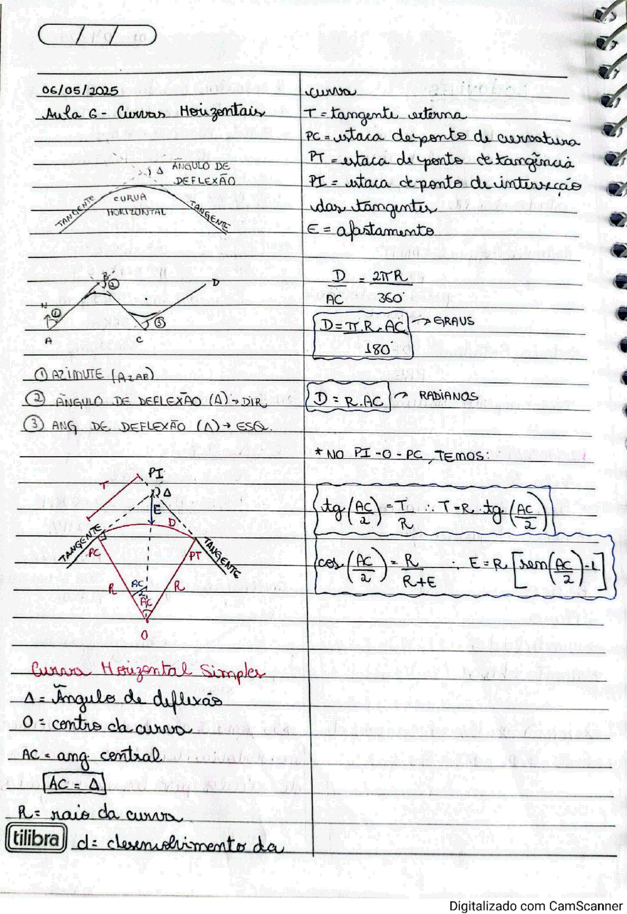 06/05/2025
Aula 6 - Curvas Horizontais
Δ ÂNGULO DE
DEFLEXÃO
TANGENTE
CURVA
HORIZONTAL
TANGENTE
N
①
A
B
②
C
③
D
① AZIMUTE (AZAB)
② ÂNGULO DE DEFLEXÃO (Δ) → DIR
③ ANG DE DEFLEXÃO (Δ) → ESQ.
PI
T
Δ
E
D
TANGENTE
PC
PT
TANGENTE
R
AC
2
AC
R
O
Curva Horizontal Simples
Δ = Ângulo de deflexão
O = centro da curva
AC = ang central
AC = Δ
R = raio da curva
tilibra
d = desenvolvimento da
curva
T = tangente externa
PC = estaca de ponto de curvatura
PT = estaca de ponto de tangência
PI = estaca de ponto de intersecção
das tangentes
E = afastamento
D/AC = 2πR/360°
D = π.R.AC/180° → GRAUS
D = R.AC → RADIANOS
* NO PI-O-PC, TEMOS:
tg(AC/2) = T/R ∴ T=R.tg(AC/2)
cos(AC/2) = R/R+E ∴ E=R[sen(AC/2)-1]
Digitalizado com CamScanner